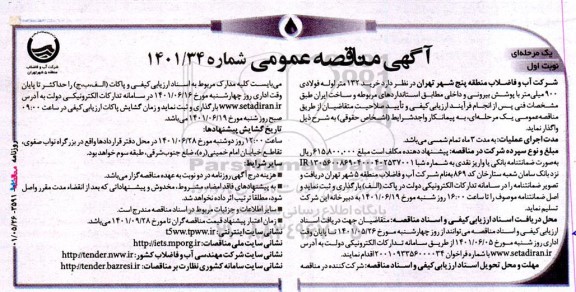 یک مرحله‌ای
نوبت اول
آگهی مناقصه عمومی شماره ۱۴۰۱/۳۴
شرکت آب و فاضلاب
منطقه ۵ شهر تهران
شرکت آب و فاضلاب منطقه پنج شهر تهران در نظر دارد خرید ۱۳۲ متر لوله فولادی
۹۰۰ میلی‌متر با پوشش بیرونی و داخلی مطابق استانداردهای مربوطه و ساخت ایران طبق
مشخصات فنی پس از انجام فرآیند ارزیابی کیفی و تأیید صلاحیت متقاضیان از طریق
مناقصه عمومی یک مرحله‌ای، به پیمانکار واجدشرایط (اشخاص حقوقی) به شرح ذیل
واگذار نماید.
مدت اجرای عملیات: به مدت ۳ ماه تمام شمسی می‌باشد.
مبلغ و نوع سپرده شرکت در مناقصه: پیشنهاد دهنده مکلف است مبلغ ۶۱۵،۸۰۰،۰۰۰ ریال
به صورت ضمانتنامه بانکی یا واریز نقدی به شماره شبا
نزد بانک سامان شعبه ستارخان کد ۸۶۹ به‌نام شرکت آب و فاضلاب منطقه ۵ شهر تهران دریافت و
تصویر ضمانتنامه را در سامانه تدارکات الکترونیکی دولت در پاکت (الف) بارگذاری و ثبت نمایند و
اصل ضمانتنامه موصوف را تا ساعت ۱۶:۰۰ روز شنبه مورخ ۱۴۰۱/۰۶/۱۹ به دبیرخانه این شرکت
تسلیم نماید.
محل دریافت اسناد ارزیابی کیفی و اسناد مناقصه: متقاضیان جهت دریافت اسناد
ارزیابی کیفی و اسناد مناقصه می‌توانند از روز چهارشنبه مورخ ۱۴۰۱/۰۵/۲۶ تا پایان وقت
اداری روز شنبه مورخ ۱۴۰۱/۰۶/۰۵ از طریق سامانه تدارکات الکترونیکی دولت به آدرس
www.setadiran.ir با شماره فراخوان ۲۰۰۱۰۹۳۳۵۶۰۰۰۰۳۴ اقدام نمایند.
مهلت و محل تحویل اسناد ارزیابی کیفی و اسناد مناقصه: شرکت کننده در مناقصه
می‌بایست کلیه مدارک مربوط به اسناد ارزیابی کیفی و پاکات (الف،ب،ج) را حداکثر تا پایان
وقت اداری روز چهارشنبه مورخ ۱۴۰۱/۰۶/۱۶ در سامانه تدارکات الکترونیکی دولت به آدرس
www.setadiran.ir بارگذاری و ثبت نماید و زمان گشایش پاکات ارزیابی کیفی در ساعت ۰۹:۰۰
صبح روز شنبه مورخ ۱۴۰۱/۰۶/۱۹ می‌باشد.
تاریخ گشایش پیشنهادها:
ساعت ۱۲:۰۰ روز دوشنبه مورخ ۱۴۰۱/۰۶/۲۸ در محل دفتر قراردادها واقع در بزرگراه نواب صفوی،
تقاطع خیابان امام خمینی (ره)، ضلع جنوب‌شرقی، طبقه سوم خواهد بود.
سایر شرایط:
هزینه درج آگهی روزنامه در دو نوبت به عهده مناقصه گزار می‌باشد.
به پیشنهادهای فاقد امضاء، مشروط، مخدوش و پیشنهاداتی که بعد از انقضاء مدت مقرر واصل
شود، مطلقاً ترتیب اثر داده نخواهد شد.
سایر اطلاعات و جزئیات مربوط در اسناد مناقصه مندرج است.
زمان اعتبار پیشنهاد قیمت مناقصه‌گران تا مورخ ۱۴۰۱/۰۹/۲۸ می‌باشد.
نشانی سایت اینترنتی: t5ww.tpww.ir
نشانی سایت ملی مناقصات: http://iets.mporg.ir
نشانی سایت شرکت مهندسی آب و فاضلاب کشور: http://tender.nww.ir
نشانی سایت سامانه کشوری نظارت بر مناقصات: http://tender.bazresi.ir